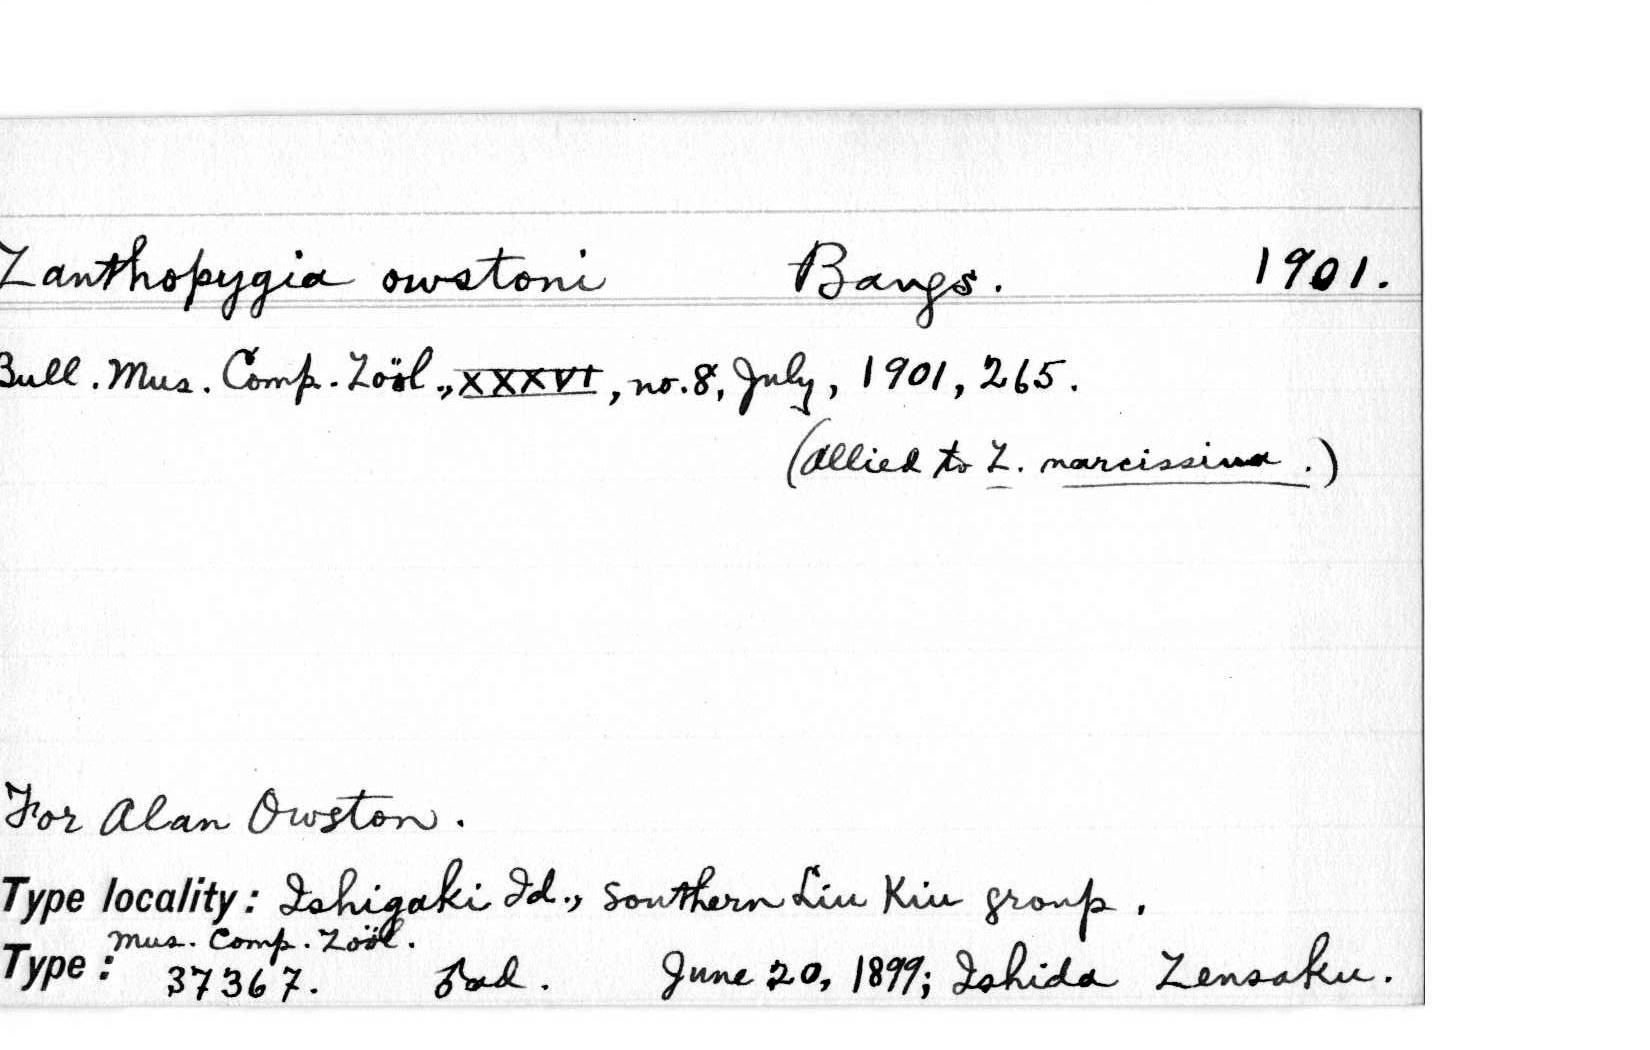 Zanthopygia owstoni Bangs. 1901.
Bull. Mus. Comp. Zoöl., XXXVI, no. 8, July, 1901, 265.
(Allied to Z. narcissina.)
For Alan Owston.
Type locality: Ishigaki Id., Southern Liu Kiu group.
Mus. Comp. Zoöl.
Type: 37367. ♂ ad. June 20, 1899; Ishida Zensaku.